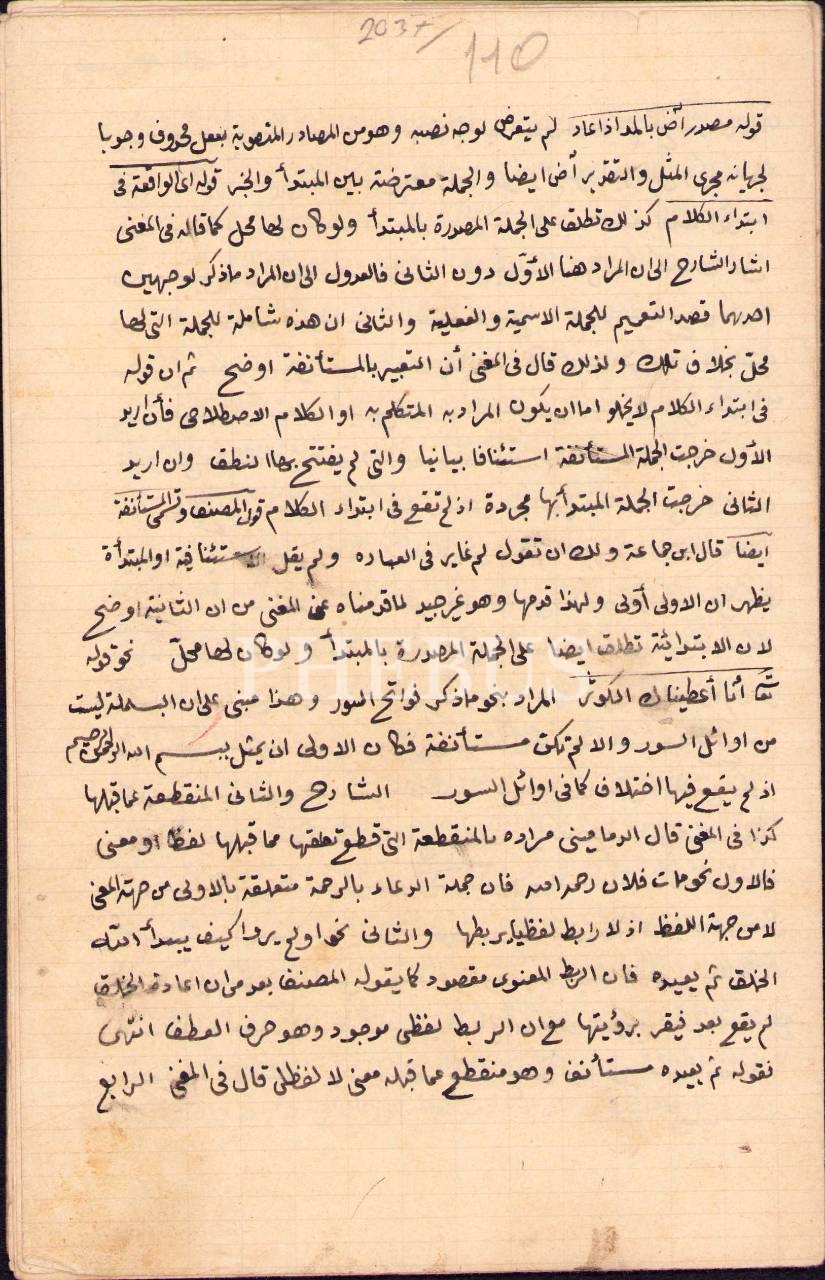 2037/
110
قوله مصدر أض بالمد اذا عاد لم يتعرض لوجه نصبه وهو من المصادر المنصوبة بفعل محذوف وجوبا
لجريانه مجرى المثل والتقدير أض ايضا والجملة معترضة بين المبتدأ والخبر قوله اى الواقعة فى
ابتداء الكلام كذلك تطلق على الجملة المصدرة بالمبتدأ ولو كان لها محل كما قاله فى المغنى
اشار الشارح الى ان المراد هنا الأوّل دون الثانى فالعدول الى ان المراد ما ذكر لوجهين
احدهما قصد التعميم للجملة الاسمية والفعلية والثانى ان هذه شاملة للجملة التى لها
محلّ بخلاف تلك ولذلك قال فى المغنى أن التعبير بالمستأنفة اوضح ثم ان قوله
فى ابتداء الكلام لا يخلو اما ان يكون المراد به المتكلم به او الكلام الاصطلاحى فأن اريد
الأول خرجت الجملة المستأنفة استئنافا بيانيا والتى لم يفتتح بها النطق وان اريد
الثانى خرجت الجملة المبتدأ بها مجردة اذ لم تقع فى ابتداء الكلام قول المصنف وتسمى المستأنفة
ايضا قال ابن جماعة ولك ان تقول لم غاير فى العباره ولم يقل الاستئنافية او المبتدأة
يظهر ان الاولى أولى ولهذا قدمها وهو غير جيد لما قدمناه عن المغنى من ان الثانية اوضح
لان الابتدائية تطلق ايضا على الجملة المصدرة بالمبتدأ ولو كان لها محلّ نحو قوله
تع أنا أعطيناك الكوثر المراد بنحو ما ذكر فواتح السور وهذا مبنى على ان البسملة ليست
من اوائل السور والا لم تكن مستأنفة فكان الاولى ان يمثل ببسم الله الرحمن الرحيم
اذ لم يقع فيها اختلاف كما فى اوائل السور الشارح والثانى المنقطعة عما قبلها
كذا فى المغنى قال الدمامينى مراده بالمنقطعة التى قطع تعلقها مما قبلها لفظا او معنى
فالاول نحو مات فلان رحمه الله فان جملة الدعاء بالرحمة متعلقة بالاولى من جهة المعنى
لا من جهة اللفظ اذ لا رابط لفظيا يربطها والثانى نحو اولم يروا كيف يبدأ الله
الخلق ثم يعيده فان الربط المعنوى مقصود كما يقوله المصنف بعد من ان اعادة الخلق
لم يقع بعد فيقر برؤيتها مع ان الربط لفظى موجود وهو حرف العطف انتهى
فقوله ثم يعيده مستأنف وهو منقطع عما قبله معنى لا لفظا قال فى المغنى الرابع
PHEBUS